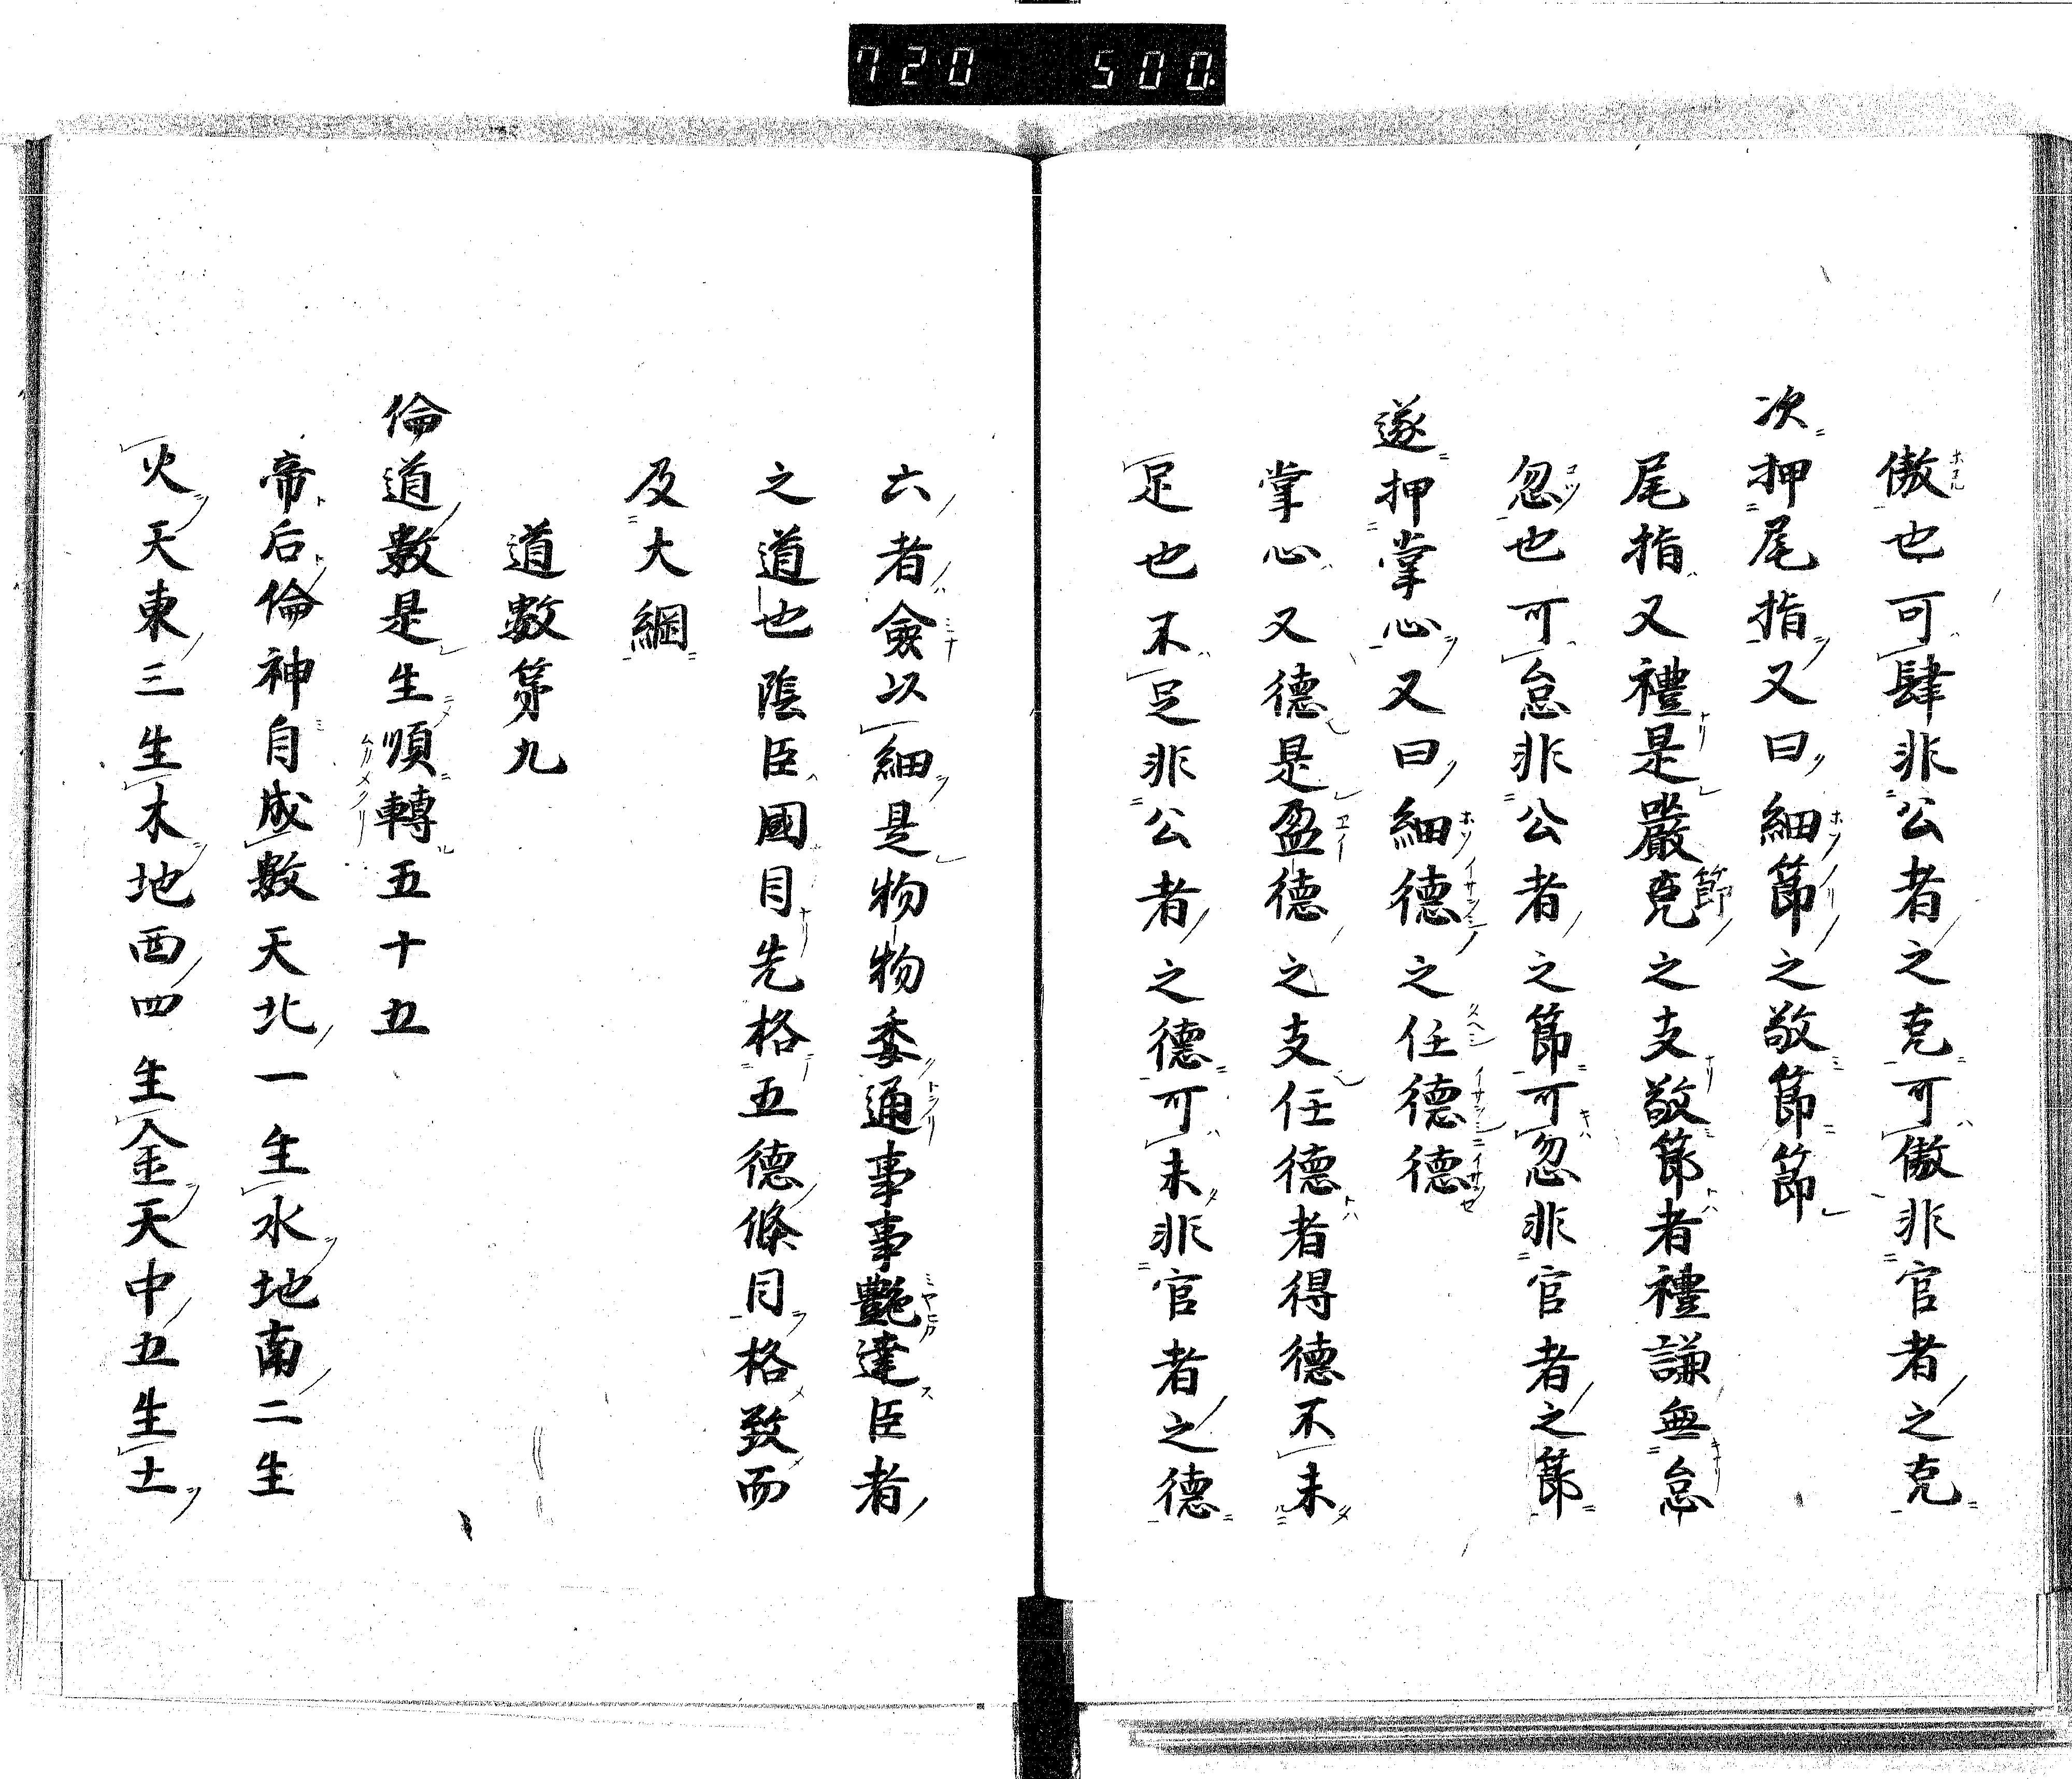 720 500.
傲也可肆非公者之克可傲非官者之克
次押尾指又曰細節之敬節節
尾指又禮是嚴克之支敬節者禮謙無怠
忽也可怠非公者之節可忽非官者之節
遂押掌心又曰細德之任德德
掌心又德是盈德之支任德者得德不未
足也不足非公者之德可未非官者之德
六者僉以細是物物委通事事艷達臣者
之道也陰臣國目先格五德條目格致而
及大綱
道數第九
倫道數是生順轉五十五
帝后倫神自成數天北一生水地南二生
火天東三生木地西四生金天中五生土